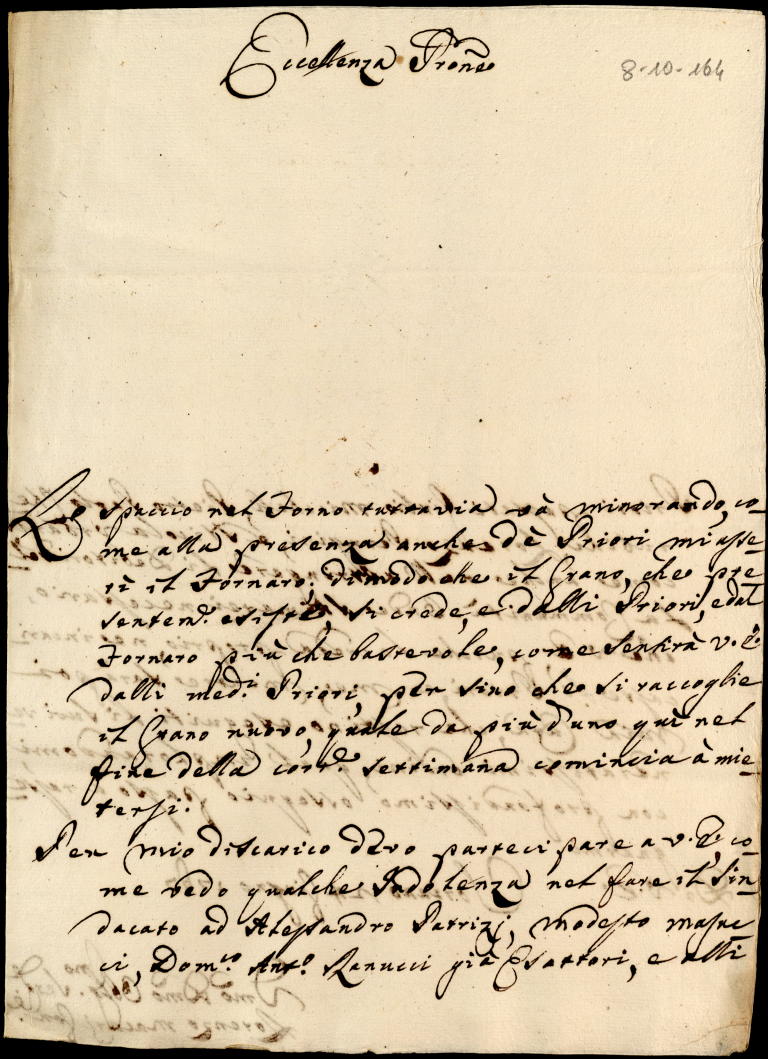 Eccellenza Prone
8-10-164
Lo spaccio nel Forno tuttavia và minorando, co-
me alla presenza anche dè Priori mi asse-
rì il Fornaro; dimodo che il Grano, che pre-
sentem.e esiste, si crede, e dalli Priori, e dal
Fornaro più che bastevole, come sentirà V. E.
dalli med.i Priori, per sino che si raccoglie
il Grano nuovo, quale da più d'uno quì nel
fine della corr.e settimana comincia à mie-
tersi.
Per mio discarico devo partecipare a V. E., co-
me vedo qualche Indolenza nel fare il Sin-
dacato ad Alessandro Patrizj, Modesto Masuc-
ci, Dom.co Ant.o Ranucci già Esattori, e alli